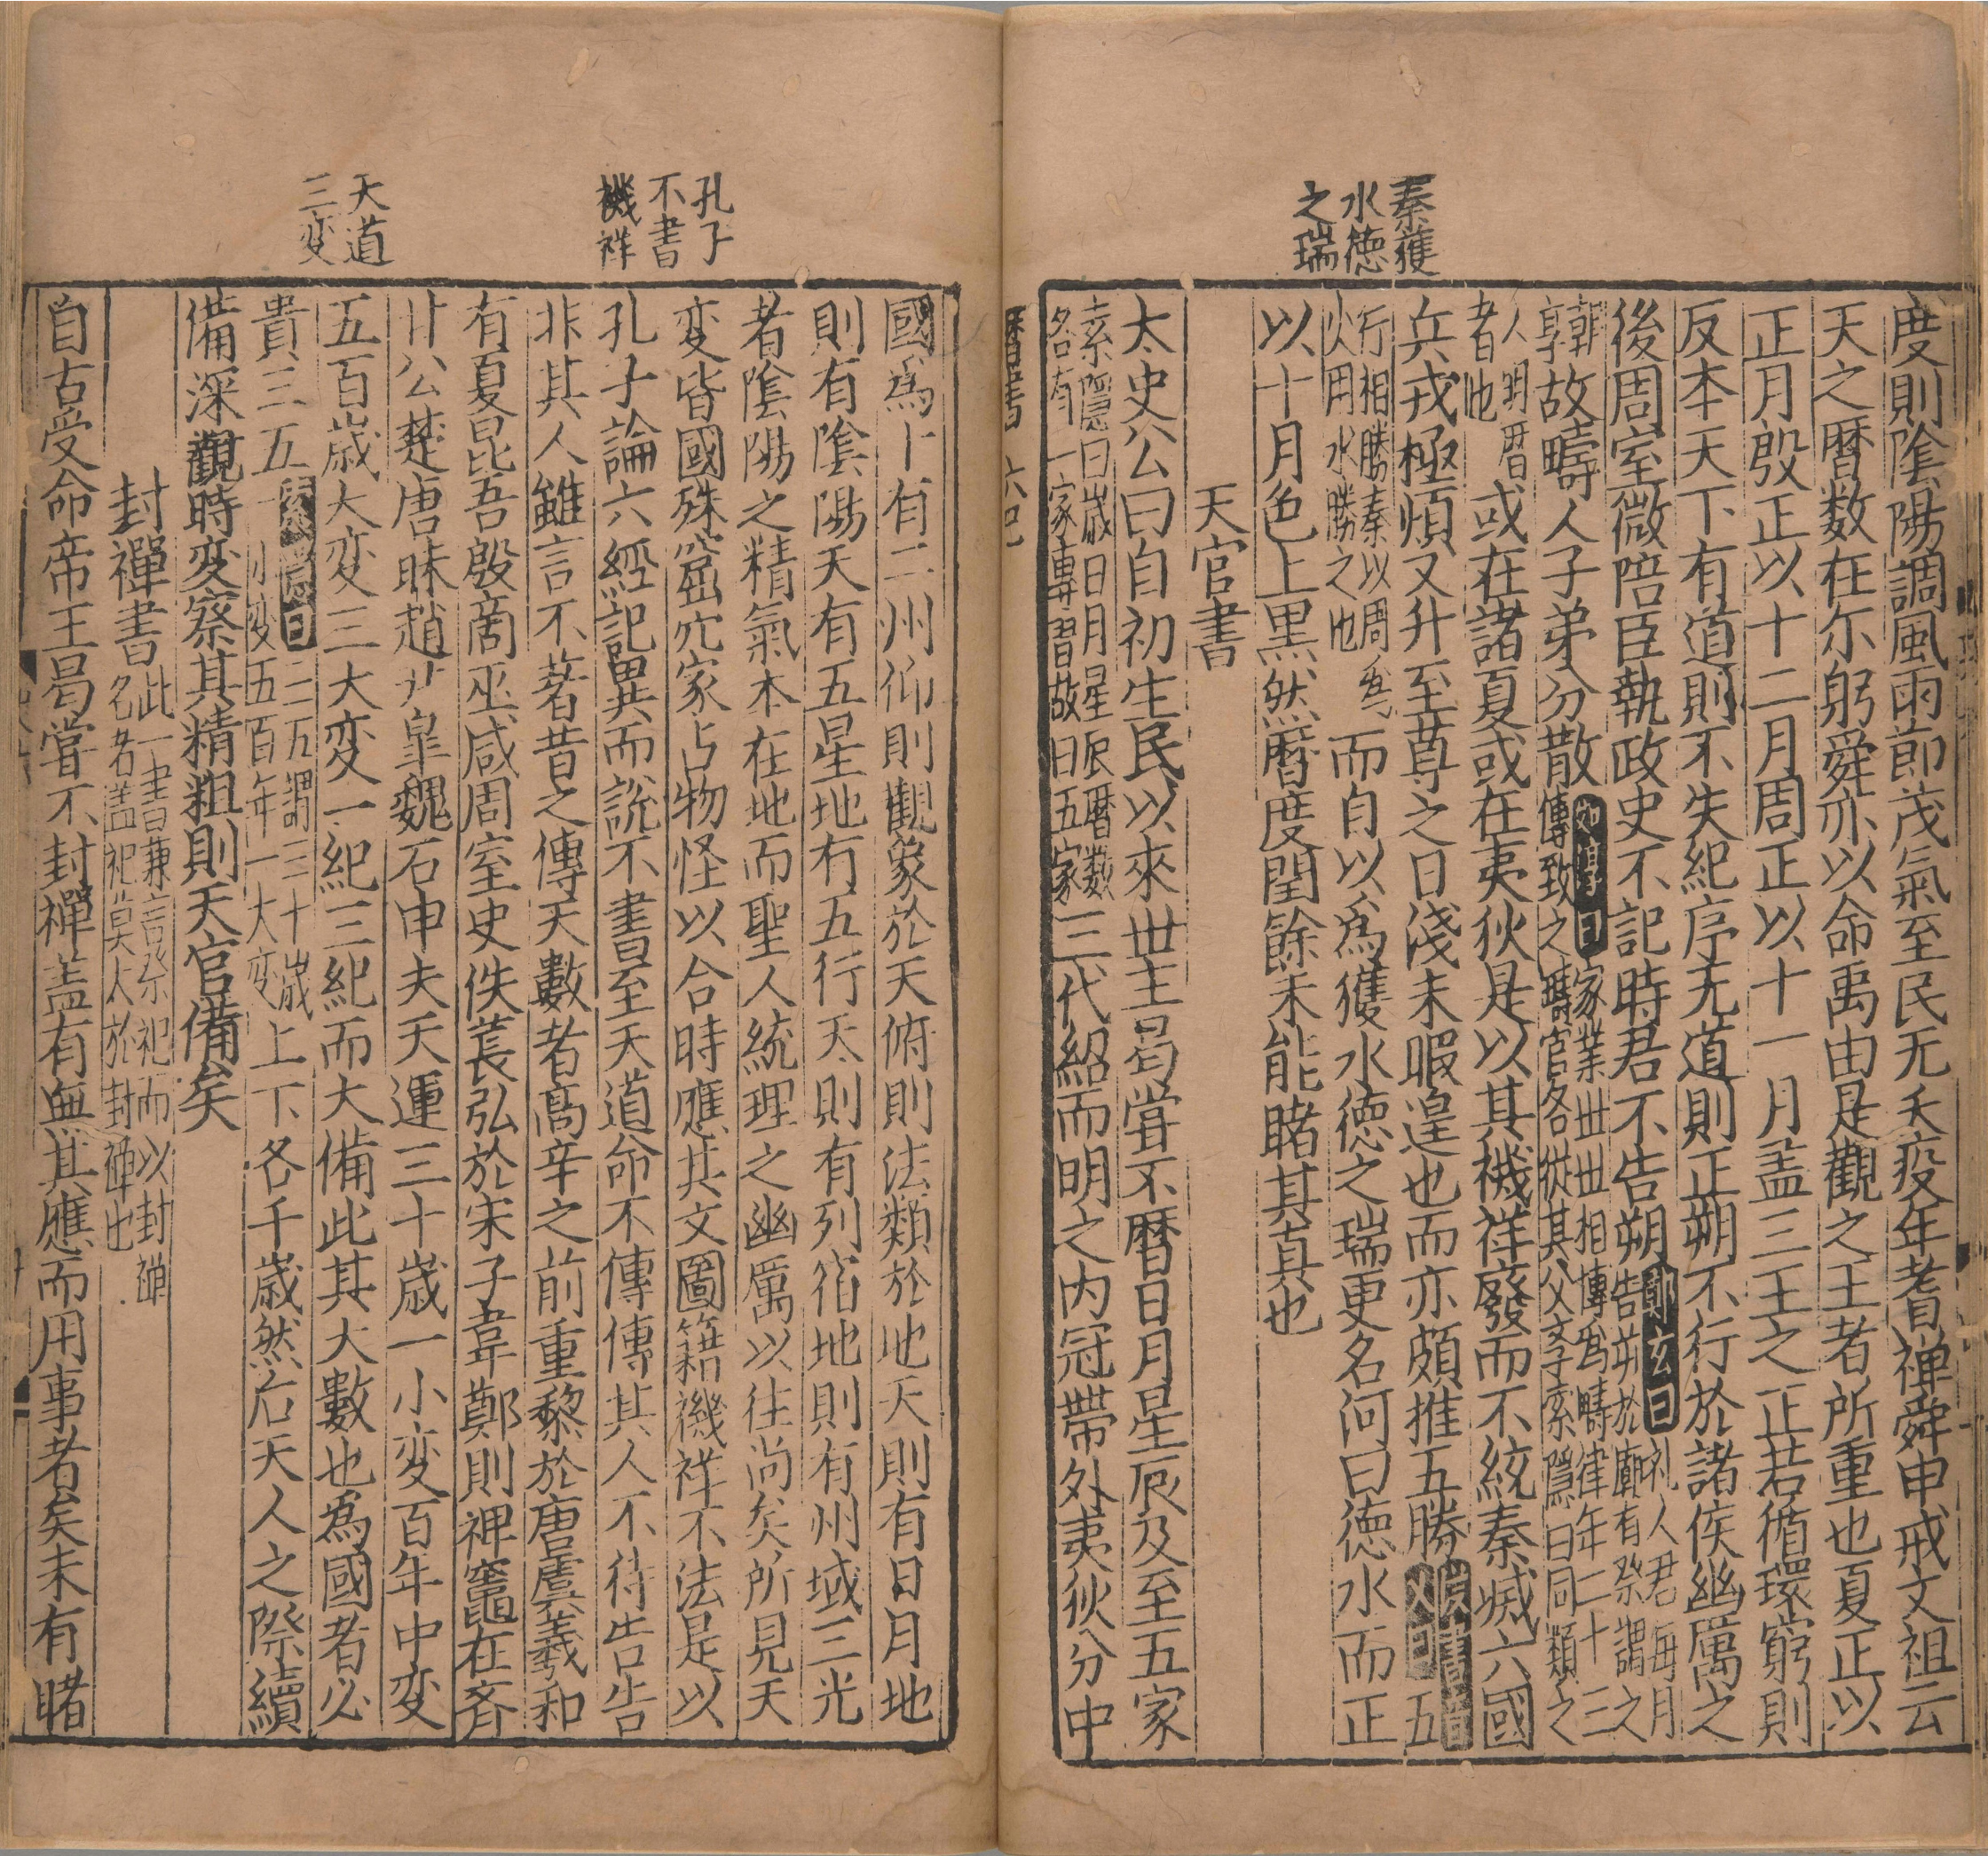 秦獲
水徳
之瑞
度則陰陽調風雨節茂氣至民无夭疫年耆禅舜申戒文祖云
天之暦数在尓躬舜亦以命禹由是觀之王者所重也夏正以
正月殷正以十二月周正以十一月盖三王之正若循環窮則
反本天下有道則不失紀序无道則正朔不行於諸侯幽厲之
後周室微陪臣執政史不記時君不告朔鄭玄曰礼人君每月告朔於廟有祭謂之
朝享故疇人子弟分散如淳曰家業世世相傳為疇律年二十三傳致之疇官各従其父斈索隱曰同類之
人明暦者也或在諸夏或在夷狄是以其禨祥廢而不統秦滅六國
兵戎極煩又升至尊之日淺未暇遑也而亦頗推五勝漢書音義曰五
行相勝秦以周為火用水勝之也而自以為獲水徳之瑞更名河曰徳水而正
以十月色上黒然暦度閏餘未能睹其真也
天官書
太史公曰自初生民以來世主曷甞不暦日月星辰及至五家
索隱曰歳日月星辰暦数各有一家專習故曰五家三代紹而明之内冠帶外夷狄分中
孔子
不書
禨祥
天道
三变
國爲十有二州仰則觀象於天俯則法類於地天則有日月地
則有陰陽天有五星地有五行天則有列宿地則有州域三光
者陰陽之精氣本在地而聖人統理之幽厲以往尚矣所見天
变皆國殊窟穴家占物怪以合時應其文圖籍禨祥不法是以
孔子論六經記異而説不書至天道命不傳傳其人不待告告
非其人雖言不著昔之傳天數者髙辛之前重黎於唐虞羲和
有夏昆吾殷商巫咸周室史佚萇弘於宋子韋鄭則裨竈在斉
甘公楚唐昧趙尹皐魏石申夫天運三十歳一小变百年中变
五百歳大变三大变一紀三紀而大備此其大數也爲國者必
貴三五索隱曰三五謂三十歳一小变五百年一大变上下各千歳然后天人之際續
備深觀時变察其精粗則天官備矣
封禪書此一書兼言祭祀而以封禅名名盖祀莫大於封禅也
自古受命帝王曷甞不封禪盖有無其應而用事者矣未有睹